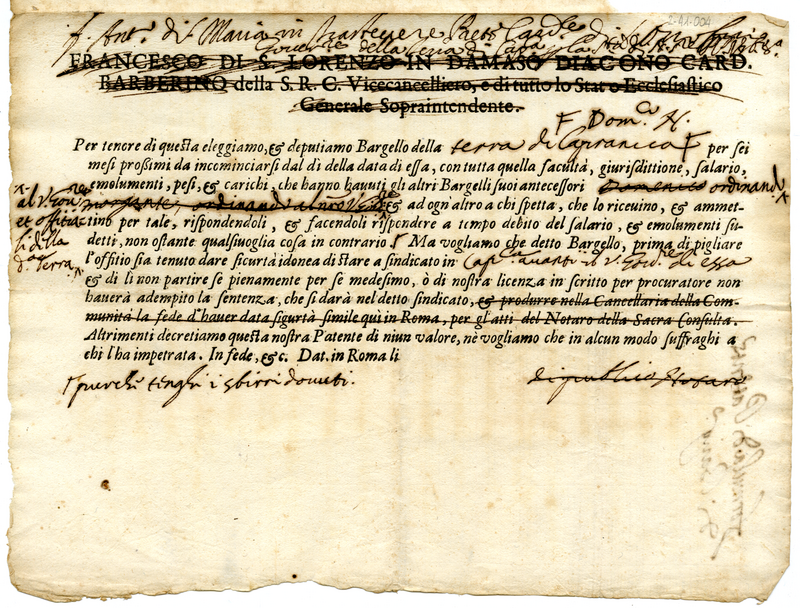 2-41-004
f. Ant.º di S. Maria in Trastevere Prete Card.e
della
FRANCESCO DI S. LORENZO IN DAMASO DIACONO CARD.
BARBERINO della S. R. C. Vicecancelliero, e di tutto lo Stato Ecclesiastico
Generale Sopraintendente.
Per tenore di questa eleggiamo, & deputiamo Bargello della terra di Capranica F per sei
mesi prossimi da incominciarsi dal dì della data di essa, con tutta quella facultà, giurisdittione, salario,
emolumenti, pesi, & carichi, che hanno hauuti gli altri Bargelli suoi antecessori Domenico ordinand
& ad ogn'altro a chi spetta, che lo riceuino, & ammet-
tino per tale, rispondendoli, & facendoli rispondere a tempo debito del salario, & emolumenti su-
detti, non ostante qualsiuoglia cosa in contrario. Ma vogliamo che detto Bargello, prima di pigliare
l'offitio sia tenuto dare sicurtà idonea di stare a sindicato in di essa
& di lì non partire se pienamente per se medesimo, ò di nostra licenza in scritto per procuratore non
hauerà adempito la sentenza, che si darà nel detto sindicato, & produrre nella Cancellaria della Com-
munità la fede d'hauer data sigurtà simile qui in Roma, per gl'atti del Notaro della Sacra Consulta.
Altrimenti decretiamo questa nostra Patente di niun valore, nè vogliamo che in alcun modo suffraghi a
chi l'ha impetrata. In fede, &c. Dat. in Roma li
purche tenghi i sbirri douuti.
di publico Notaro
F Dom.co
et offitia
li della
d.a terra